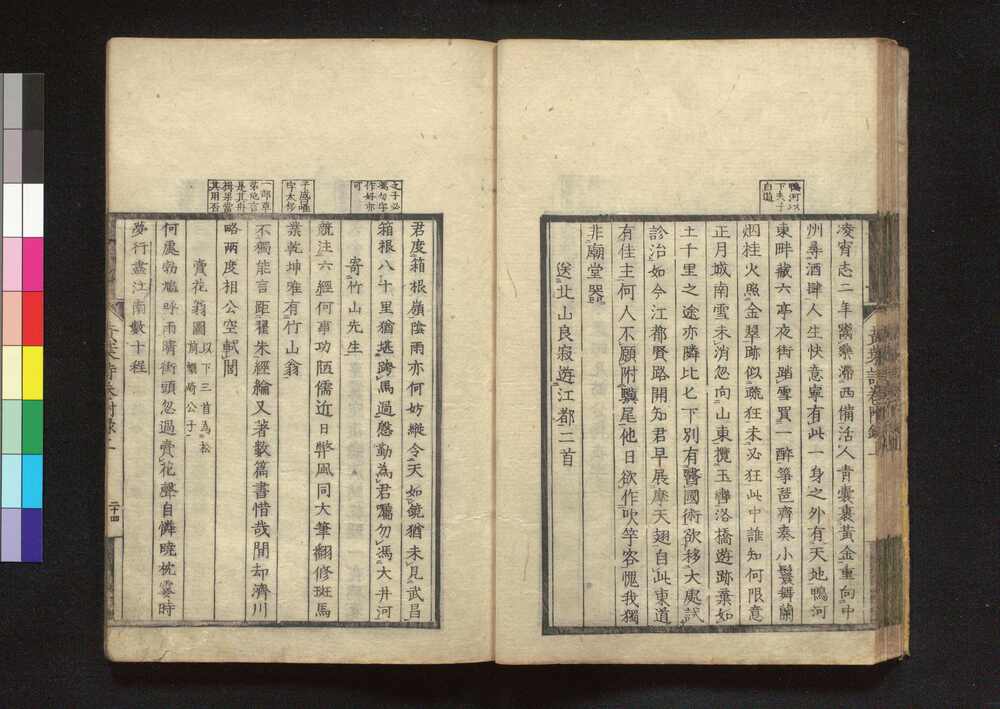 鴨河以
下夫子
自道
凌宵志二年跡樂滯西備活人青囊裹黃金重向中
州尋酒肆人生快意寧有此一身之外有天地鴨河
東畔藏六亭夜街踏雪買一醉箏琶齊奏小鬟舞蘭
烟挂火照金翠跡似疏狂未必狂此中誰知何限意
正月城南雪未消忽向山東攬玉轡洛橋遊跡葉如
土千里之途亦隣比匕下別有醫國術欲移大處試
診治如今江都賢路開知君早展摩天翅自此東道
有佳主何人不願附驥尾他日欲作吹竽客愧我獨
非廟堂器
送北山良寂遊江都二首
之子必
作好亦
可
子成唯
一部卓
其用否
君度箱根嶺陰雨亦何妨縱令天如鏡猶未見武昌
箱根八十里猶堪跨馬過慇勤為君囑勿馮大井河
寄竹山先生
疏注六經何事功陋儒近日弊風同大筆翻修班馬
業乾坤雅有竹山翁
不獨能言距翟朱經綸又著數篇書惜哉閒却濟川
略兩度相公空軾閭
賣花翁圖
以下三首為松
前蠣崎公子
何處勃鳩呼雨晴街頭忽過賣花聲自憐曉枕零時
夢行盡江南數十程
二十四